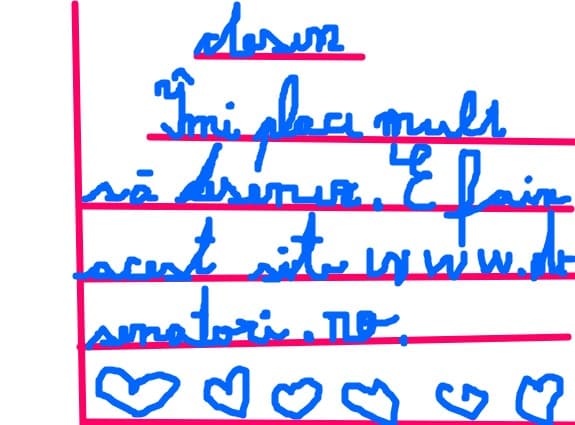 desen
Îmi placi mult
să desenez. E fain
acest site www.de
senatori.ro.